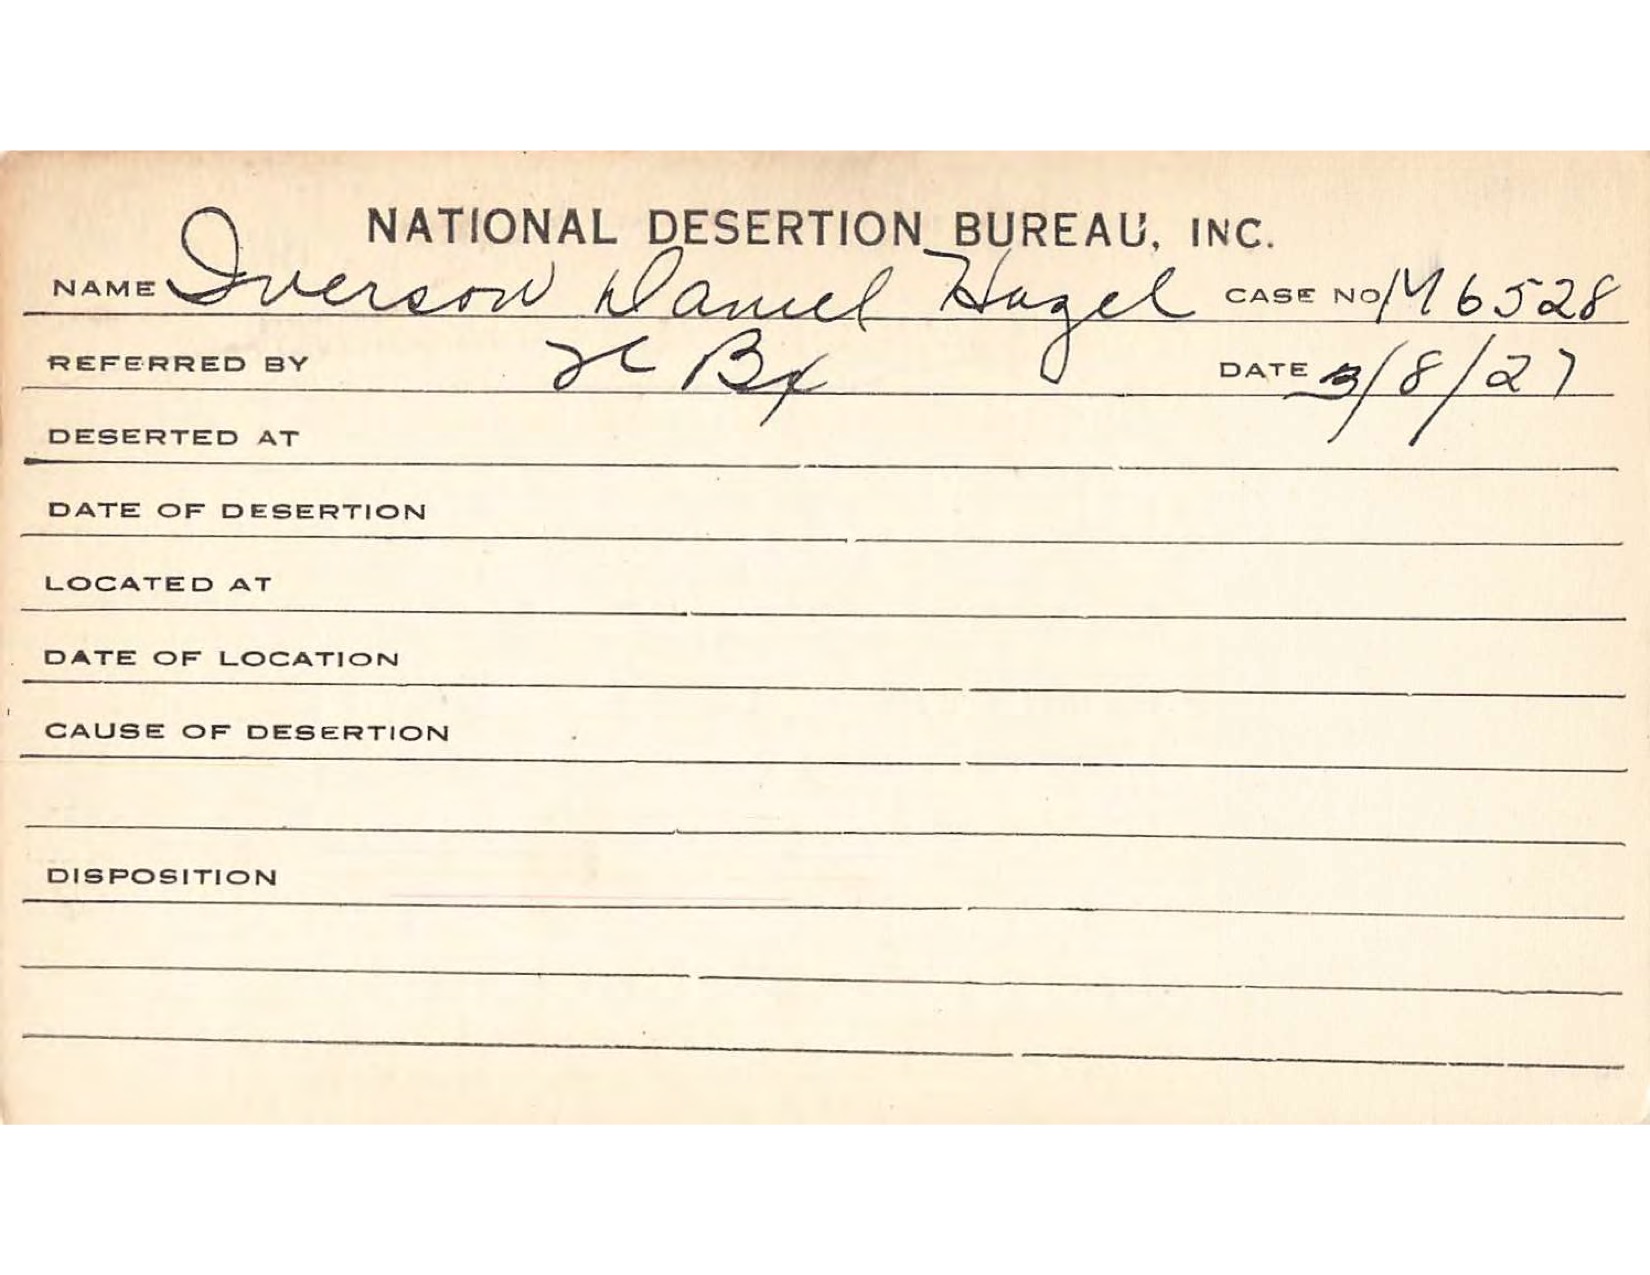 NATIONAL DESERTION BUREAU, INC.
NAME Iverson Daniel Hazel CASE NO M6528
REFERRED BY Bx DATE 3/8/27
DESERTED AT
DATE OF DESERTION
LOCATED AT
DATE OF LOCATION
CAUSE OF DESERTION
DISPOSITION